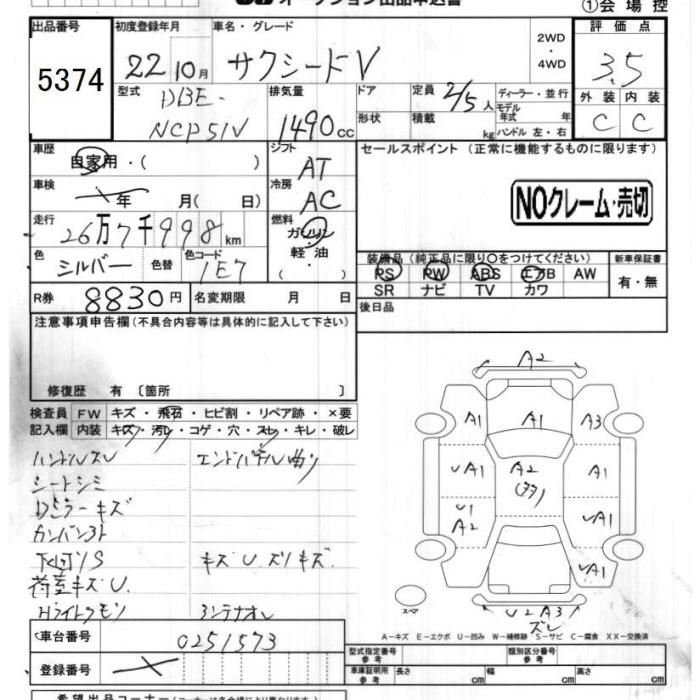 ①会場控
出品番号
5374
初度登録年月
22 10月
車名・グレード
サクシードV
2WD
・
4WD
評価点
3.5
外装 内装
C C
型式
DBE-
NCP51V
排気量
1490cc
ドア
形状
定員 2/5人
積載 kg
ディーラー・並行
モデル年式 年
ハンドル 左・右
車歴
自家用・( )
シフト
AT
セールスポイント (正常に機能するものに限ります)
NOクレーム・売切
車検
年 月(日)
冷房
AC
走行
26万7千998km
燃料
ガソリン
軽油
・( )
色
シルバー
色替
色コード
1E7
装備品(純正品に限り○をつけてください)
PS PW ABS エアB AW
SR ナビ TV カワ
新車保証書
有・無
R券
8830円
名変期限 月 日
後日品
注意事項申告欄(不具合内容等は具体的に記入して下さい)
修復歴 有〔箇所 〕
検査員 FW キズ・飛石・ヒビ割・リペア跡・×要
記入欄 内装 キズ・汚レ・コゲ・穴・スレ・キレ・破レ
ハンドルスレ エンドパネル曲リ
シートシミ
Dミラーキズ
カンバン跡
下廻リS キズU.ズリキズ
荷室キズU.
Hライトクモリ
A2
A1 A1 A3
UA1 A2 A1
U1
A2 UA1
UA1
スペア
U2 A3
ズレ
A-キズ E-エクボ U-凹み W-補修跡 S-サビ C-腐食 XX-交換済
車台番号
0251573
登録番号
型式指定番号
参考
類別区分番号
参考
車庫証明用
参考
長さ cm 幅 cm 高さ cm